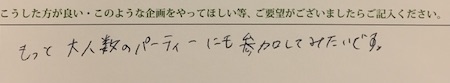 こうした方が良い・このような企画をやってほしい等、ご要望がございましたらご記入ください。
もって大人数のパーティーにも参加してみたいです。